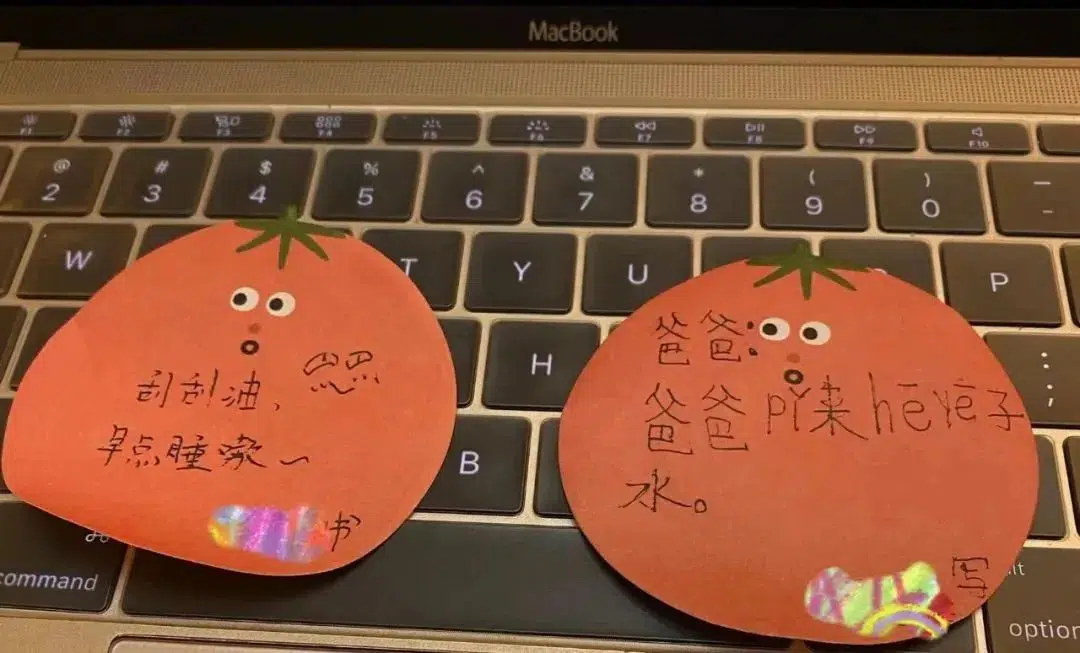 MacBook
F1 F2 F3 F4 F5 F6 F7 F8 F9 F10
@ # $ % ^ & * ( ) —
2 3 4 5 6 7 8 9 0 -
W T Y U P
H : ;
B
command
option
刮刮油、
早点睡 ~
书
爸爸:
爸爸 来hēyē子
水。
写